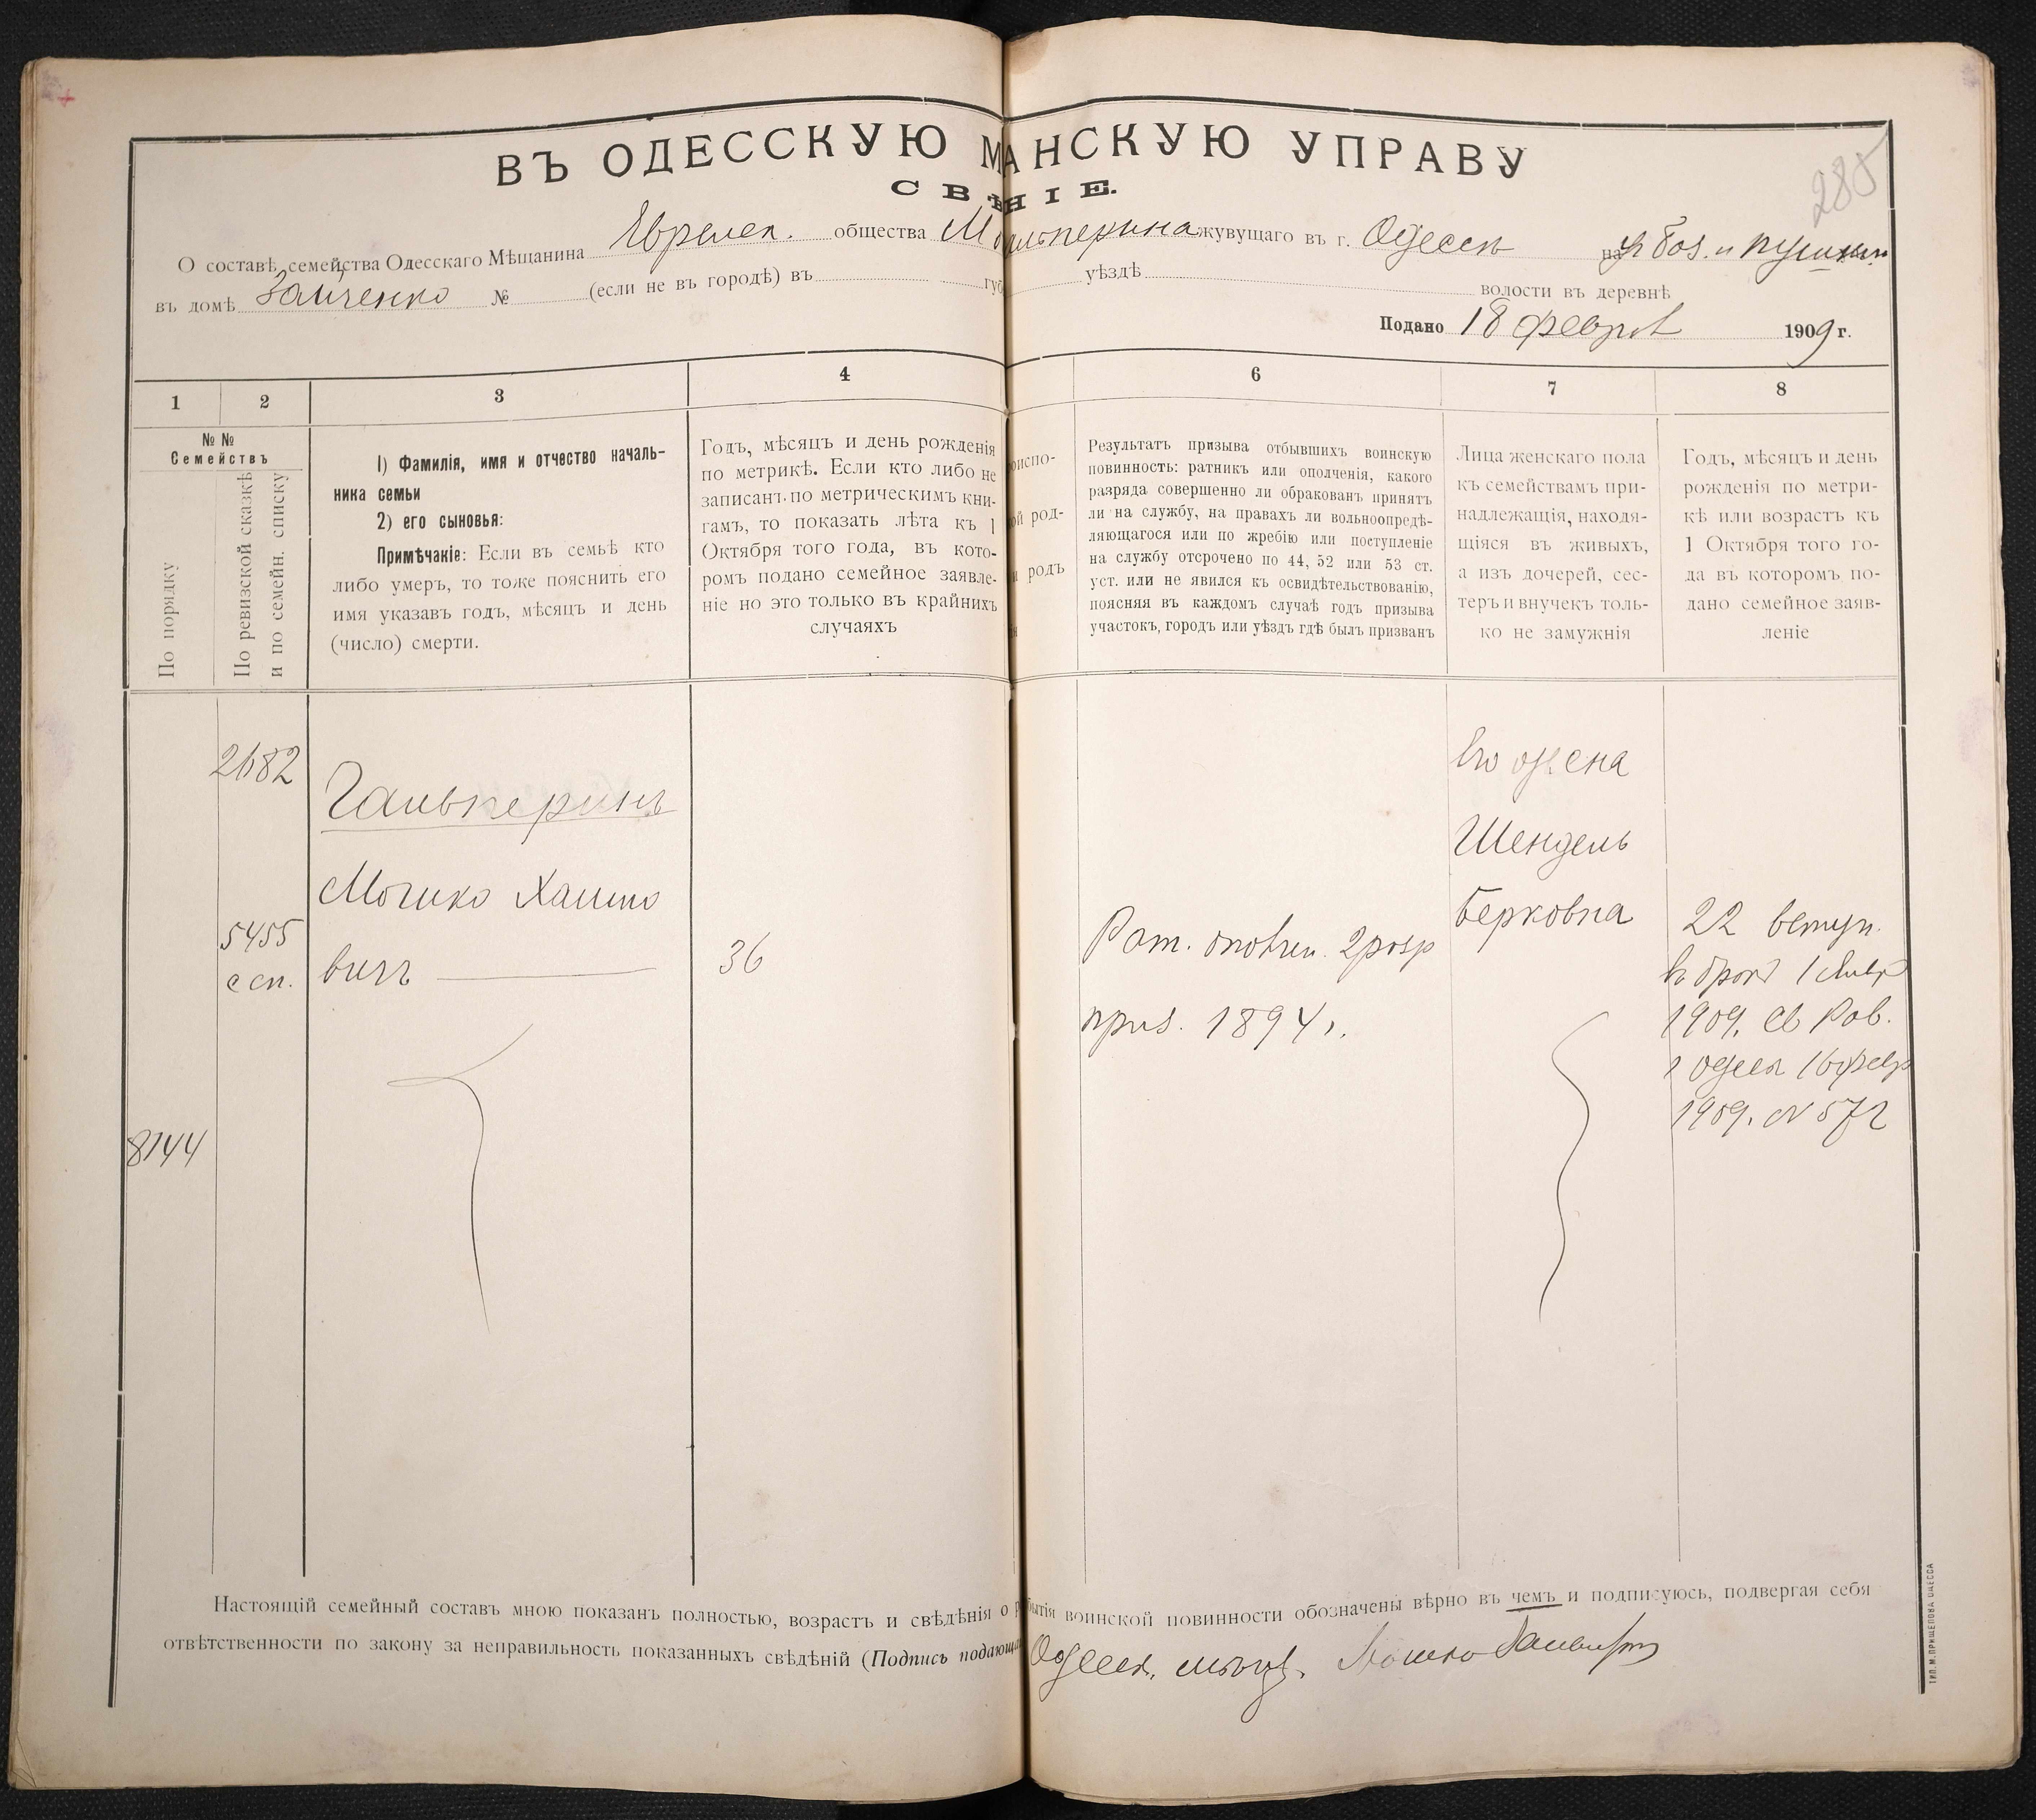 285
ВЪ ОДЕССКУЮ М АНСКУЮ УПРАВУ
СВѢ НІЕ.
О составѣ семейства Одесскаго Мѣщанина Еврейск. общества М альперина жувущаго въ г. Одессѣ на
въ домѣ Зайченко № (если не въ городѣ) въ губ уѣздѣ волости въ деревнѣ
Подано 18 феврал 1909 г.
1 2 3 4 6 7 8
№ №
Семействъ
По порядку
По ревизской сказкѣ
и по семейн. списку
1) Фамилія, имя и отчество началь-
ника семьи
2) его сыновья:
Примѣчакіе: Если въ семьѣ кто
либо умеръ, то тоже пояснить его
имя указавъ годъ, мѣсяцъ и день
(число) смерти.
Годъ, мѣсяцъ и день рожденія
по метрикѣ. Если кто либо не
записанъ по метрическимъ кни-
гамъ, то показать лѣта къ 1
Октября того года, въ кото-
ромъ подано семейное заявле-
ніе но это только въ крайнихъ
случаяхъ
оиспо-
ой род-
и родъ
Результатъ призыва отбывшихъ воинскую
повинность: ратникъ или ополченія, какого
разряда совершенно ли обракованъ принятъ
ли на службу, на правахъ ли вольноопредѣ-
ляющагося или по жребію или поступленіе
на службу отсрочено по 44, 52 или 53 ст.
уст. или не явился къ освидѣтельствованію,
поясняя въ каждомъ случаѣ годъ призыва
участокъ, городъ или уѣздъ гдѣ былъ призванъ
Лица женскаго пола
къ семействамъ при-
надлежащія, находя-
щіяся въ живыхъ,
а изъ дочерей, сес-
теръ и внучекъ толь-
ко не замужнія
Годъ, мѣсяцъ и день
рожденія по метри-
кѣ или возрастъ къ
1 Октября того го-
да въ которомъ по-
дано семейное заяв-
леніе
2682
Гальперинъ
Мошко Хаимо
вичъ
5455
с сп.
36
8144
Рат. ополчен. 2 разр
приз. 1894 г.
Его жена
Шендель
Берковна
22 вступ.
въ бракъ 1 Январ
1909. св Рав.
г Одессы 16 февр
1909. № 572
Настоящій семейный составъ мною показанъ полностью, возрастъ и свѣдѣнія о бытія воинской повинности обозначены вѣрно въ чемъ и подписуюсь, подвергая себя
отвѣтственности по закону за неправильность показанныхъ свѣдѣній (Подпись подающа Одесск. мѣщ. Мошко Гальперин
ТИП. М. ПРИЩЕПОВА ОДЕССА